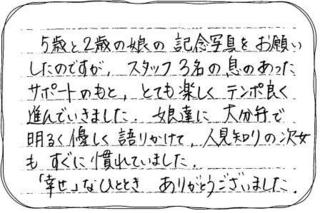 5歳と2歳の娘の記念写真をお願い
したのですが、スタッフ3名の息のあった
サポートのもと、とても楽しくテンポ良く
進んでいきました。娘達に大分弁で
明るく優しく語りかけて、人見知りの次女
もすぐに慣れていました。
「幸せ」なひととき ありがとうございました。